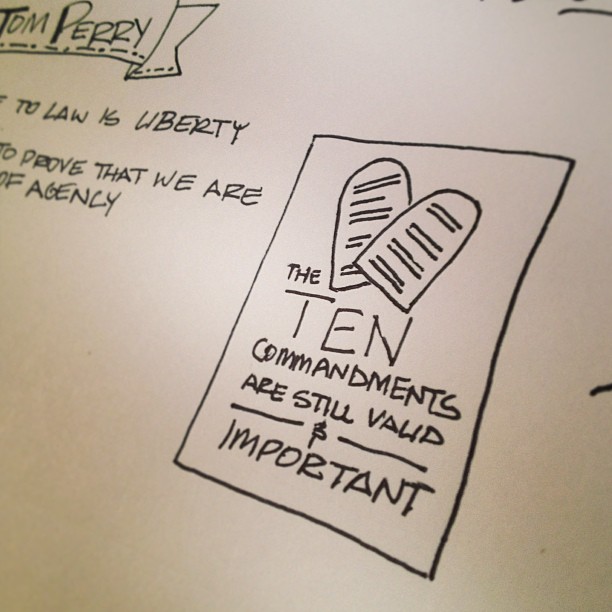 TOM PERRY
TO LAW IS LIBERTY
TO PROVE THAT WE ARE
OF AGENCY
THE
TEN
COMMANDMENTS
ARE STILL VALID
&
IMPORTANT